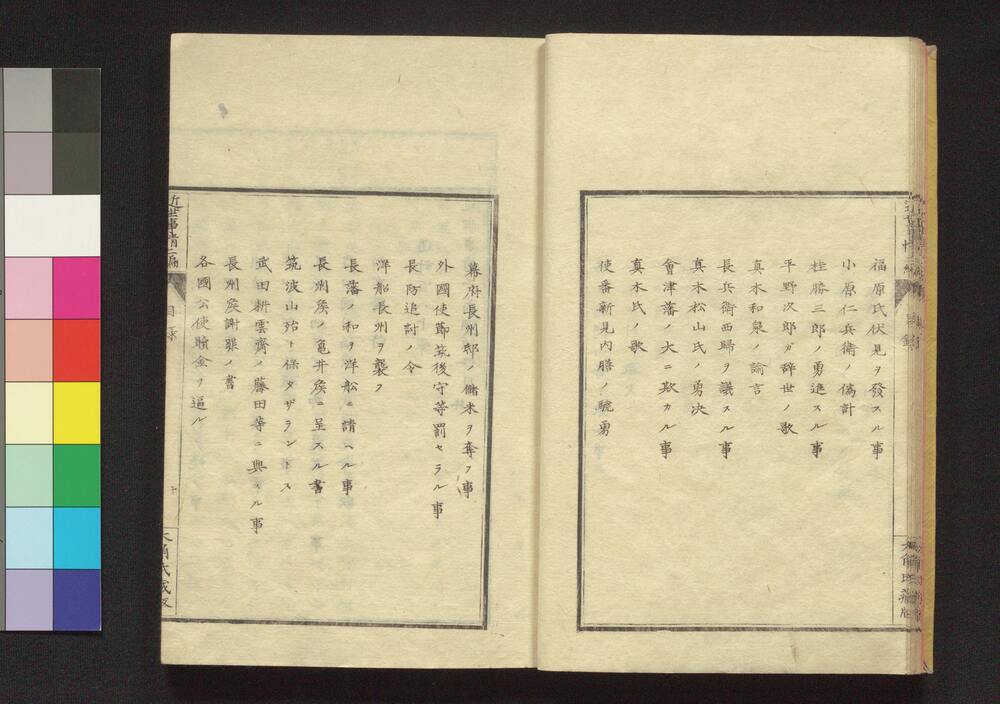 福原氏伏見ヲ發スル事
小原仁兵衞ノ偽計
桂勝三郎ノ勇進スル事
平野次郎ガ辞世ノ歌
真木和泉ノ諭言
長兵衛西歸ヲ議スル事
真木松山氏ノ勇决
會津藩ノ大ニ欺カル事
真木氏ノ歌
使番新見内膳ノ驍勇
幕府長州邸ノ儲米ヲ奪フ事
外國使節筑後守等罰セラル事
長防追討ノ令
洋船長州ヲ襲フ
長藩ノ和ヲ洋舩ニ請ヘル事
長州矦ノ亀井矦ニ呈スル書
筑波山殆ト保タザラントス
武田耕雲齋ノ藤田等ニ與スル事
長州矦謝罪ノ書
各國公使贖金ヲ逼ル
近世事情二編
目録